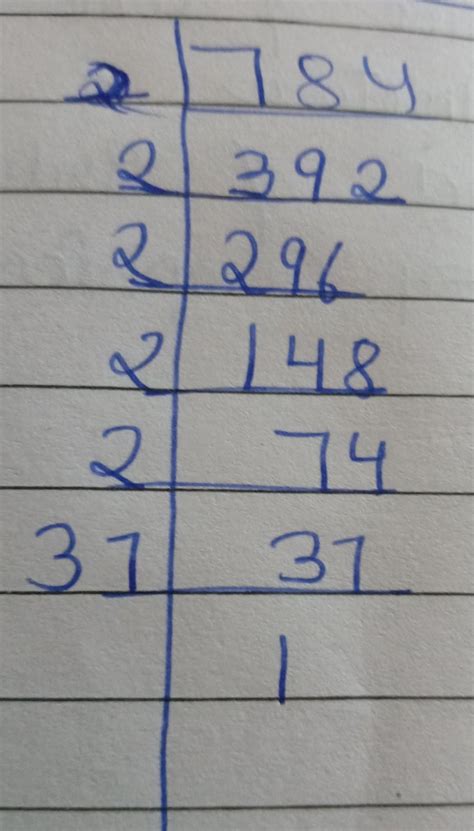 2 784
2 392
2 296
2 148
2 74
37 37
1